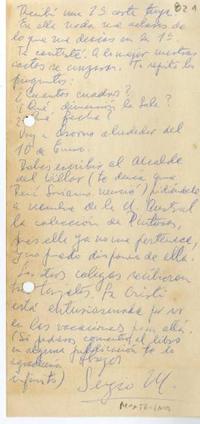 821
Recibí una 2ª carta tuya.
En ella nada me aclaras de
lo que me decías en la 1ª.
Te contesté. A lo mejor nuestras
cartas se cruzaron. Te repito las
preguntas:
¿Cuántos cuadros?
¿Qué dimensión la Sala?
¿Qué fecha?
Voy a Osorno alrededor del
10 de Enero.
Debes escribir al Alcalde
del (te decía que
René Soriano murió) pidiéndole
a nombre de la U. Austral
la colección de Pintores,
pues ella ya no me pertenece,
y no puedo disponer de ella.
Los dos colegas recibieron
tus. La Cristi
está entusiasmada por ver
en las vacaciones por allá.
(Si pudieras comentar el libro
en alguna publicación te lo
agradecería Abrazos
infinito) Sergio M.
MONTECINO